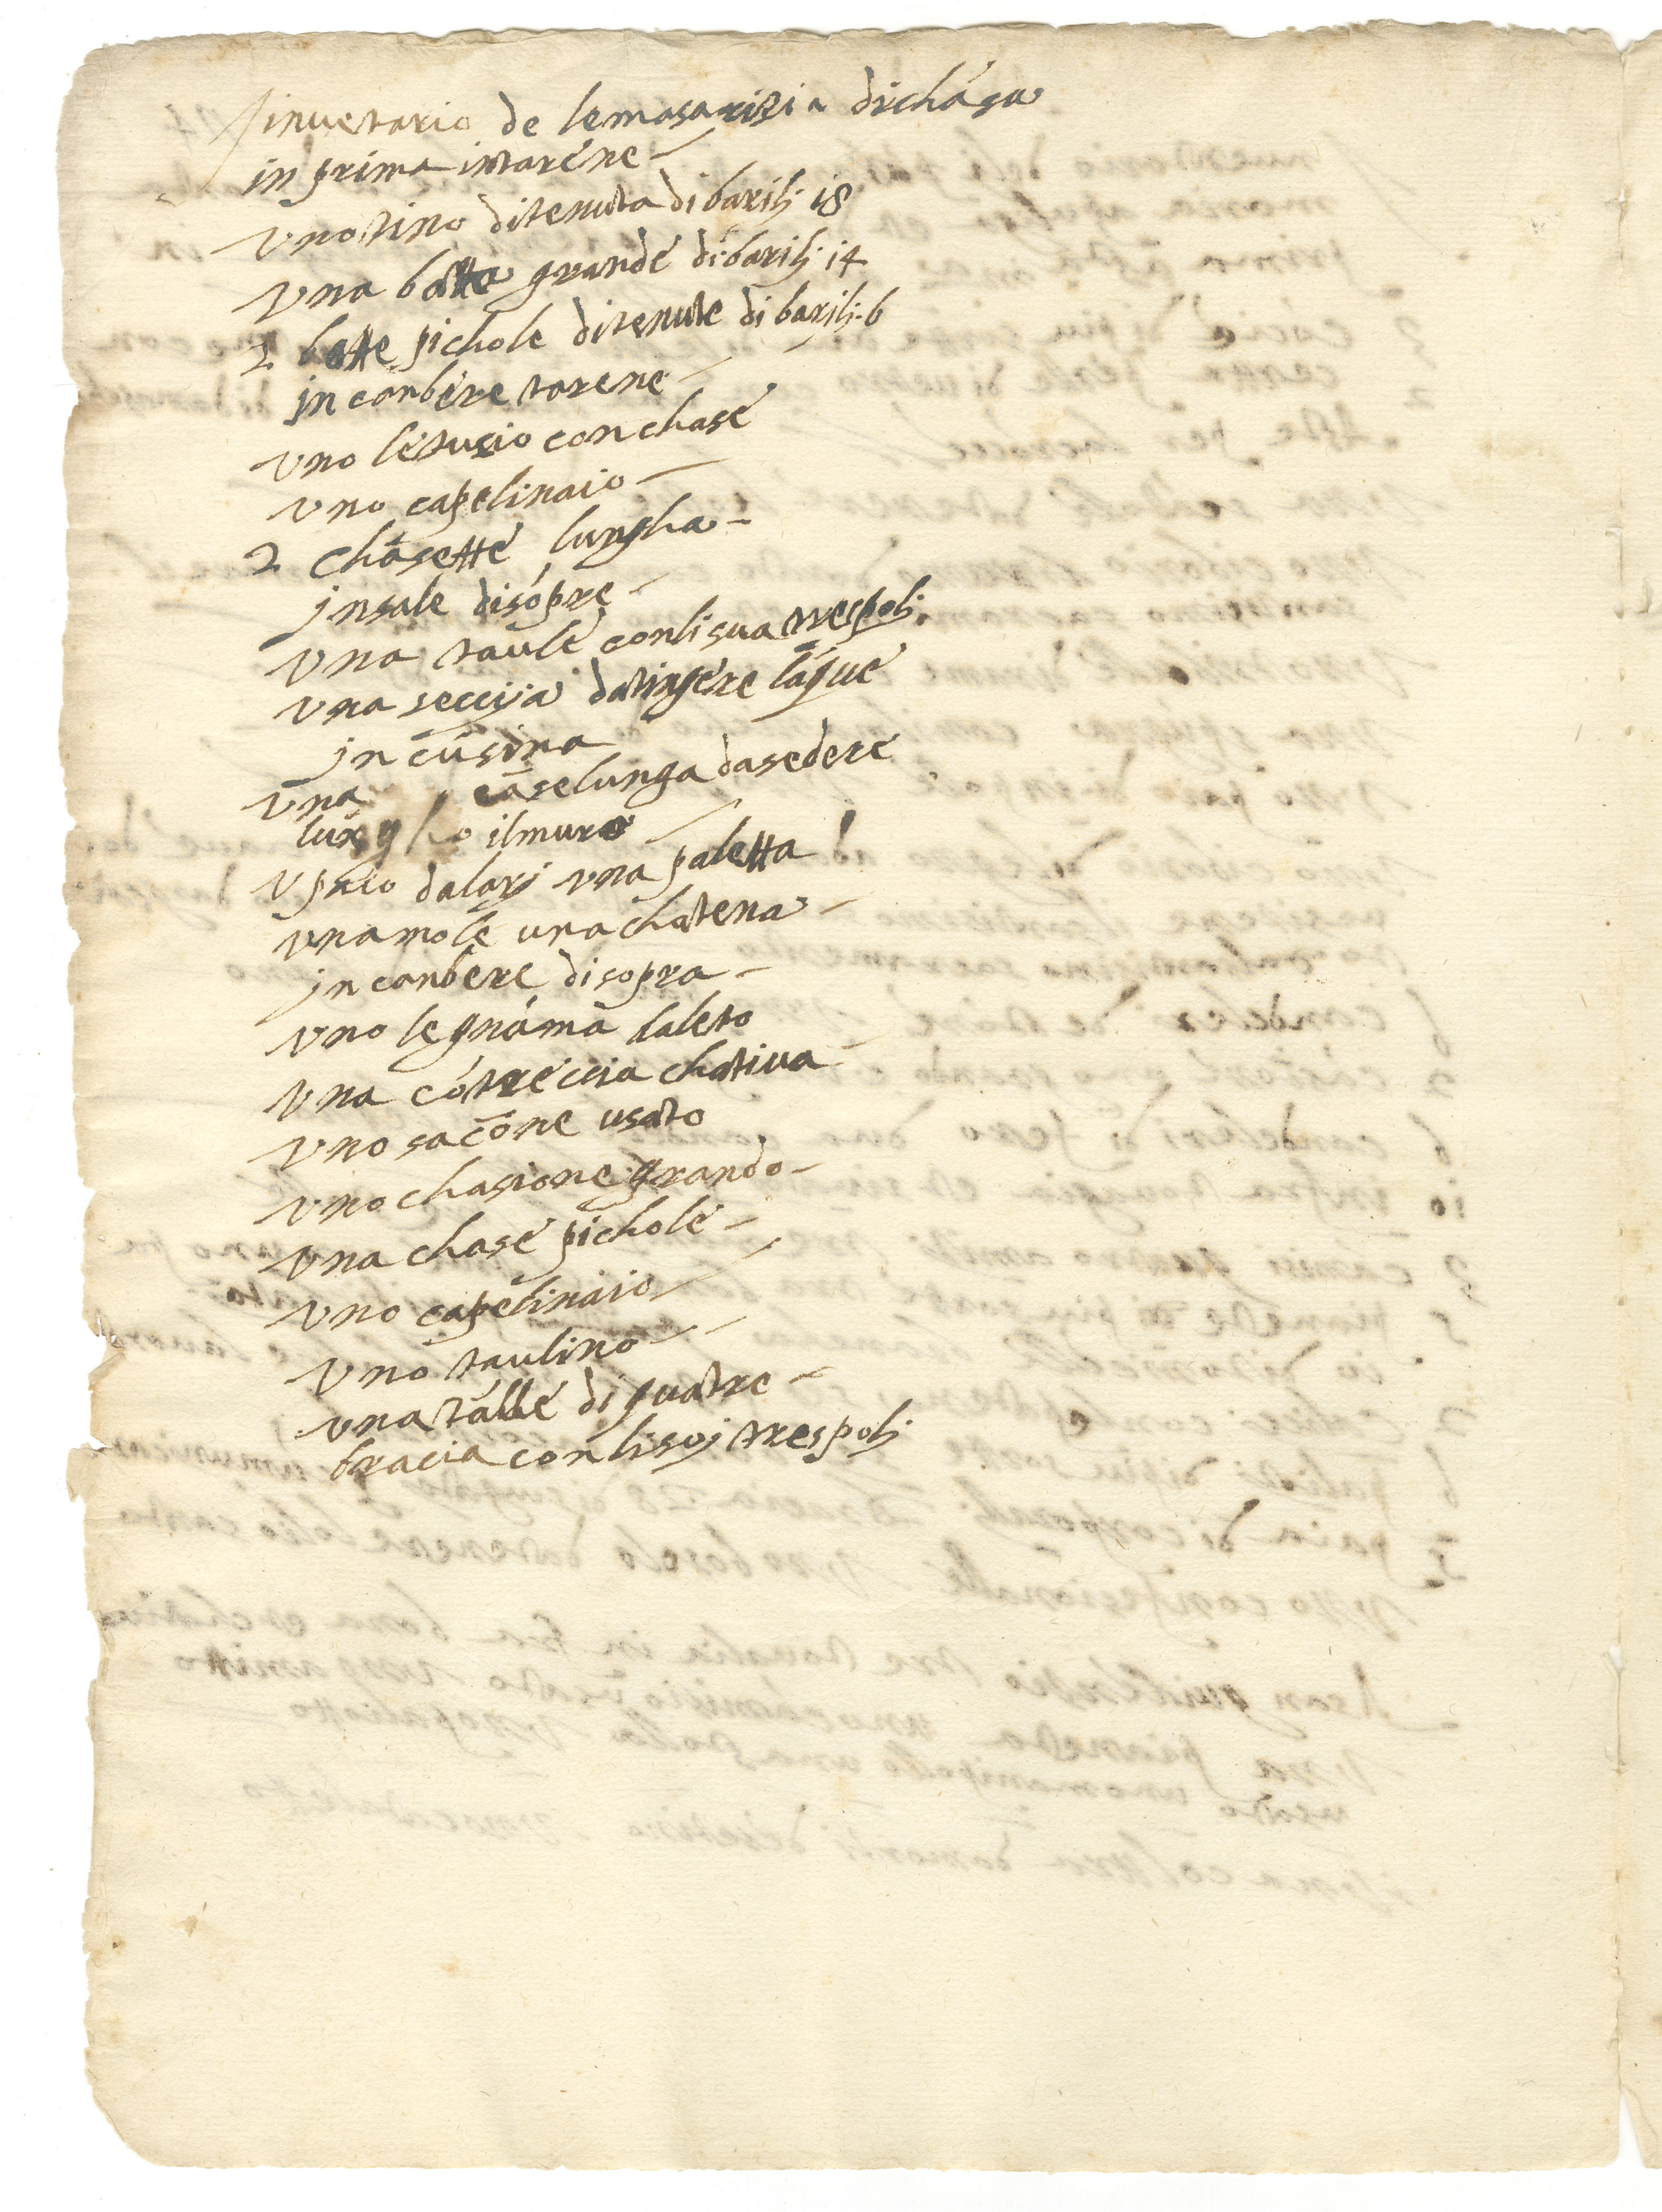 inuetario de lemasarizia dichasa
in prima intarene
vno tino ditenuta di barilj 18
vna botte grande di barilj 14
2 botte pichole ditenute di barilj 6
in canbere tarene
vno letusio con chase
vno capelinaio
2 chasette lungha
in sale disopre
vna taule conli sua trespolj
vna seccija datingere laque
in cusina
vna case lunga dasedere
lungho il muro
v paio dalarj vna paletta
vna mole una chatena
in canbere disopra
vno legnama laleto
vna cotreccia chativa
vno sacone usato
vno chasione grando
vna chase pichole
vno capelinaio
vno taulino
vna talle di quatre
bracia con lisoj trespolj